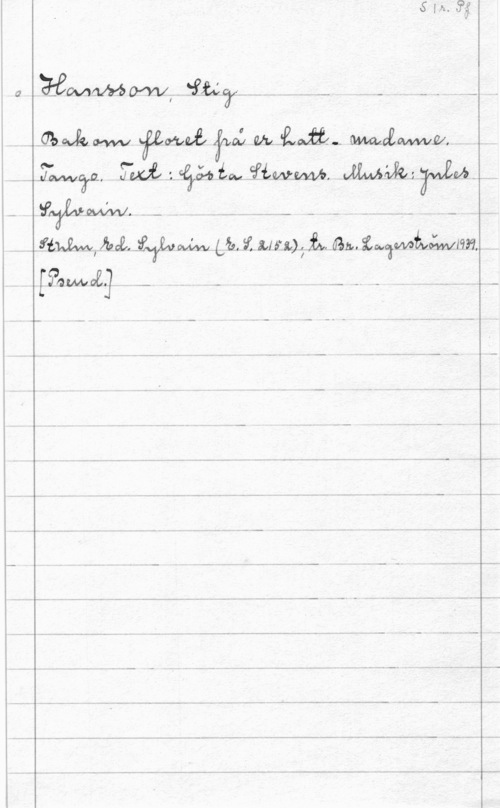 S 1 r. Pf
Hansson, Stig
Bakom floret på er hatt - madame.
Tango. Text: Gösta Stevens. Musik: Jules
Sylvain.
Sthlm, Ed. Sylvain (E. S. 2152); tr. Br. Lagerström 1939.
[Pseud.]